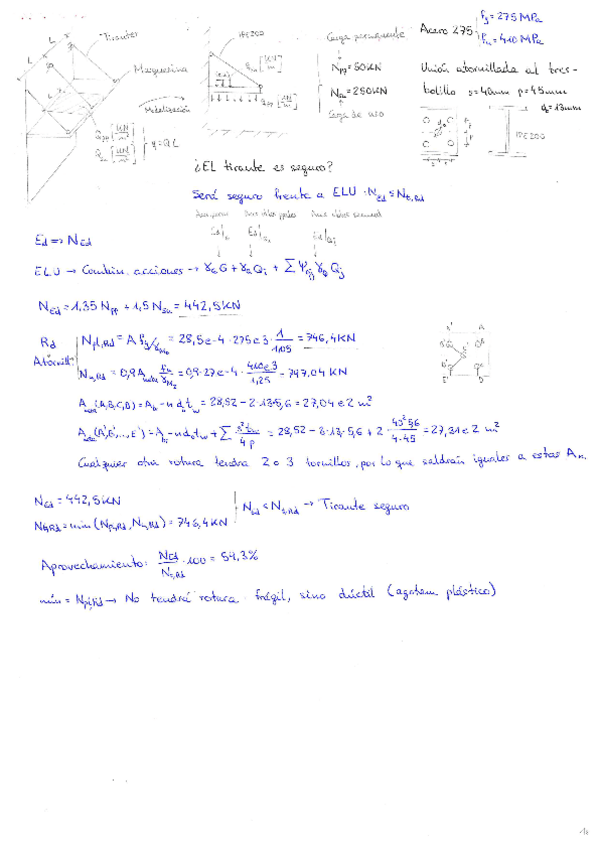 Tirantes
Marquesina
Modelización
q = Q·L
IPE200
Carga permanente
N_pp = 50KN
N_su = 250KN
Carga de uso
Acero 275
f_y = 275 MPa
f_u = 410 MPa
Unión atornillada al tres-
bolillo s=40mm p=45mm
d_o = 13mm
IPE200
¿El tirante es seguro?
Será seguro frente a ELU : N_Ed ≤ N_t,Rd
E_d => N_Ed
ELU → Combin. acciones → γ_G G + γ_Q Q_i + Σ Ψ_0j γ_Q Q_j
N_Ed = 1,35 N_pp + 1,5 N_su = 442,5KN
R_d
Atornill.
N_pl,Rd = A f_y/γ_M0 = 28,5e-4 · 275e3 · 1/1,05 = 746,4KN
N_u,Rd = 0,9 A_neta f_u/γ_M2 = 0,9·27e-4 · 410e3/1,25 = 797,04 KN
A_neta (A,B,C,D) = A_b - n d_o t_w = 28,52 - 2·13·5,6 = 27,04 e2 m²
A_neta (A',B',...,E') = A_b - n d_o t_w + Σ s² t_w/4p = 28,52 - 3·13·5,6 + 2 · 40² 5,6/4·45 = 27,31e2 m²
Cualquier otra rotura tendrá 2 o 3 tornillos, por lo que saldrán iguales a estas A_n.
N_Ed = 442,5KN
N_t,Rd = min (N_pl,Rd, N_u,Rd) = 746,4KN
N_Ed < N_t,Rd → Tirante seguro
Aprovechamiento: N_Ed/N_t,Rd · 100 = 59,3%
mín = N_pl,Rd → No tendrá rotura frágil, sino dúctil (agotam plástico)